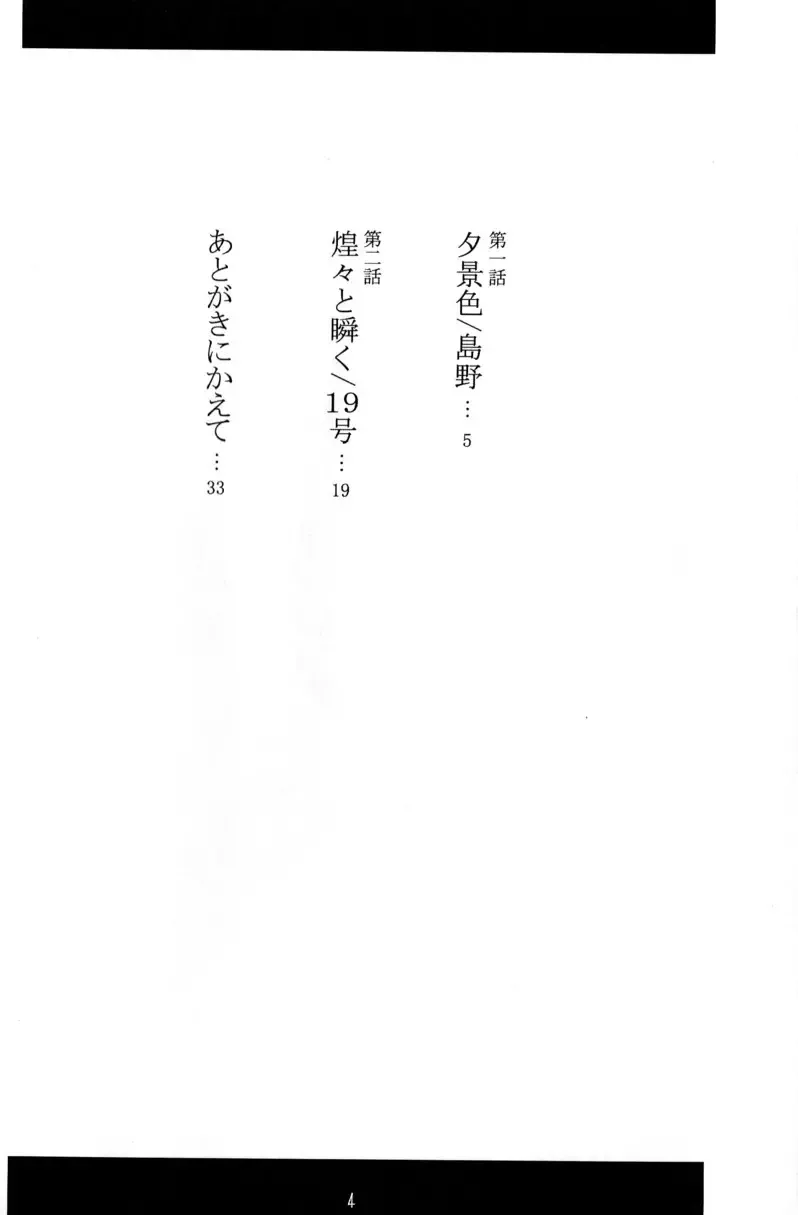 第一話
夕景色/島野…5
第二話
煌々と瞬く/19号…19
あとがきにかえて…33
4